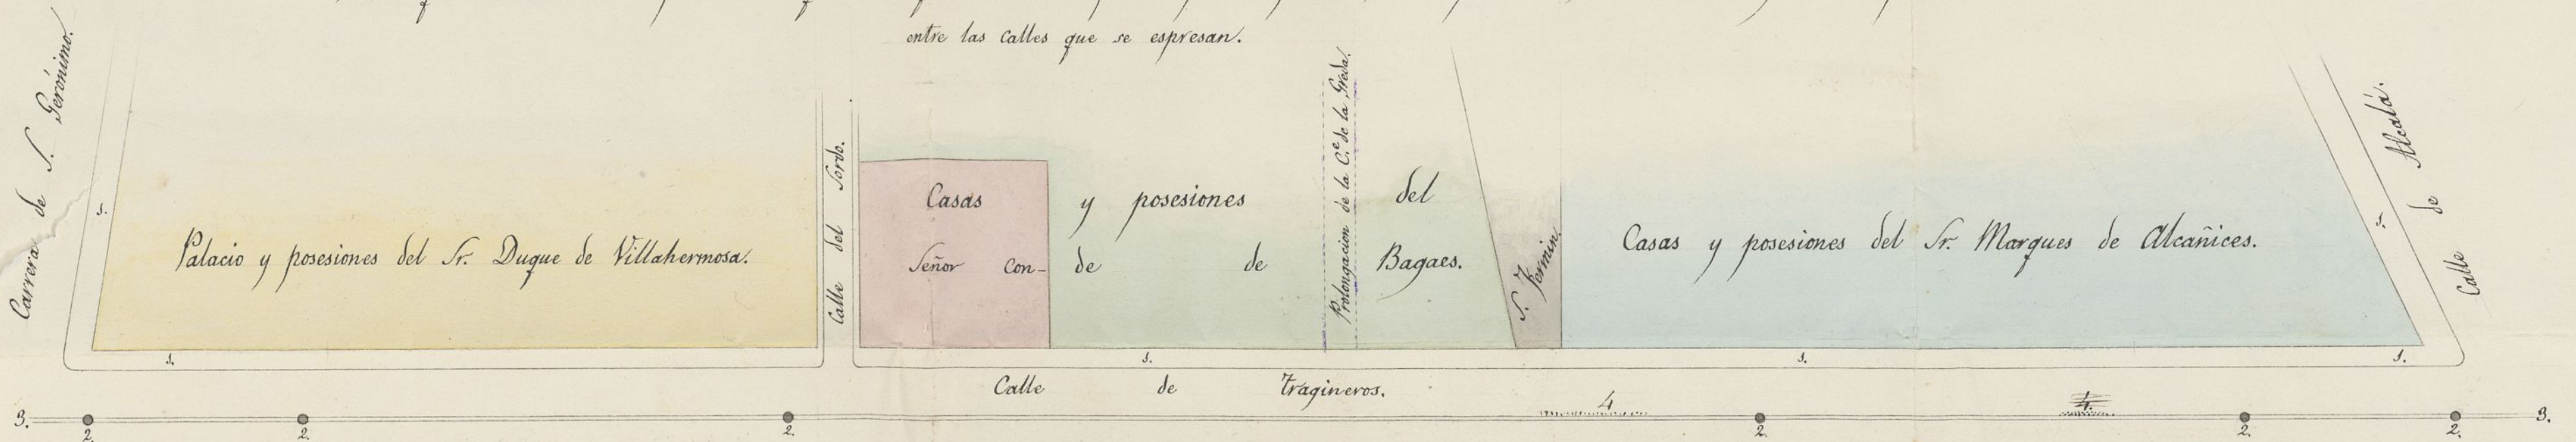 entre las calles que se espresan.
Carrera de S. Gerónimo.
s.
Palacio y posesiones del Sr. Duque de Villahermosa.
s.
Calle del Sordo.
Casas y posesiones del
Señor Con- de de Bagaes.
Prolongacion de la C.e de la Greda.
S. Fermin.
Casas y posesiones del Sr. Marques de Alcañices.
s.
Calle de Alcalá.
s.
s.
s.
Calle de Tragineros.
3.
2.
2.
2.
4
2.
4.
2.
2.
3.